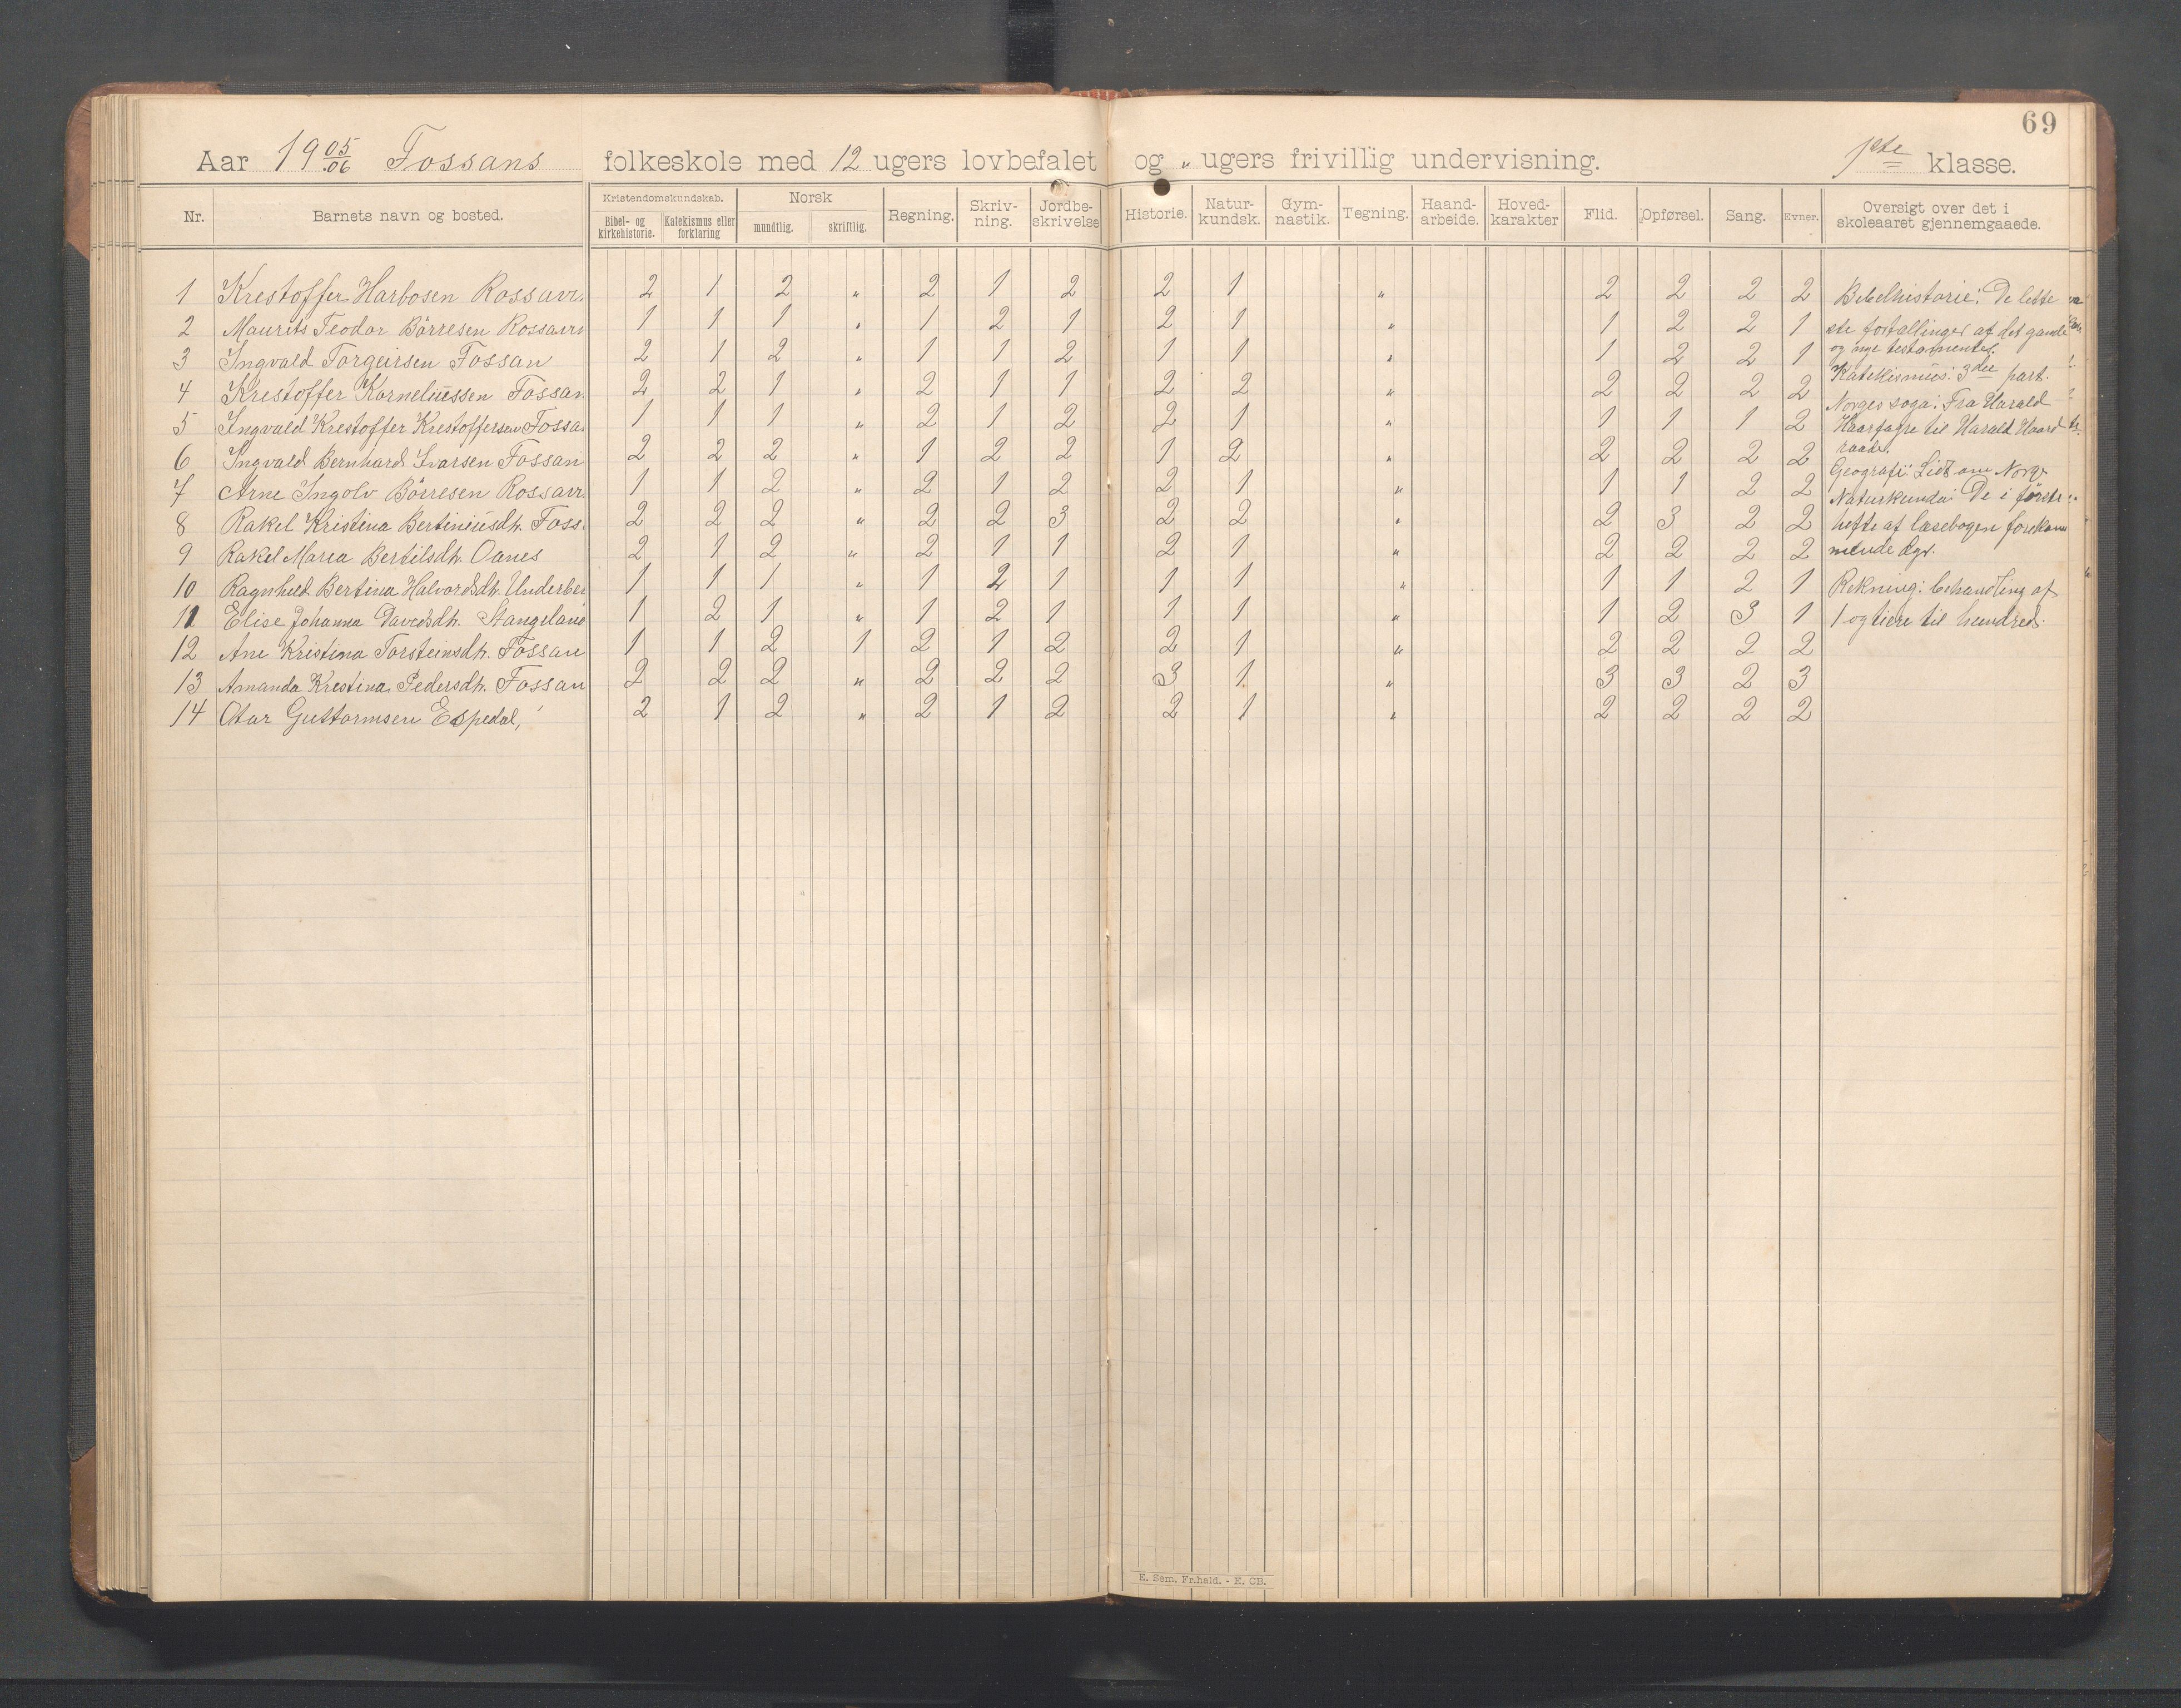 69
Aar 1905/06 Fossans folkeskole med 12 ugers lovbefalet og „ ugers frivillig undervisning. 1ste klasse.
Nr. Barnets navn og bosted. Kristendomskundskab. Bibel- og kirkehistorie. Katekismus eller forklaring Norsk mundtlig. skriftlig. Regning. Skriv-ning. Jordbe-skrivelse Historie. Natur-kundsk. Gym-nastik. Tegning. Haand-arbeide. Hoved-karakter Flid. Opførsel. Sang. Evner. Oversigt over det i skoleaaret gjennemgaaede.
1 Krestoffer Harbosen Rossavi 2 1 2 „ 2 1 2 2 1 „ 2 2 2 2 Bibelhistorie: De lette
2 Maurits Teodor Börresen Rossavi 1 1 1 „ 1 2 1 2 1 „ 1 2 2 1 ste fortallinger af det gamle
3 Ingvald Torgeirsen Fossan 2 1 2 „ 1 1 2 1 1 „ 1 2 2 1 og nye testamentes.
4 Krestoffer Korneliussen Fossan 2 2 1 „ 2 1 1 2 2 „ 2 2 2 2 Katekismus: 3die part.
5 Ingvald Krestoffer Krestoffersen Fossa 1 1 1 „ 2 1 2 2 1 „ 1 1 1 2 Norges soga: Fra Harald
Haarfagre til Harald Haard
6 Ingvald Bernhard Ivarsen Fossan 2 2 2 „ 1 2 2 1 2 „ 2 2 2 2 raade.
Geografi: Lidt om Norg
7 Arne Ingolv Börresen Rossavi 1 1 2 „ 2 1 2 2 1 „ 1 1 2 2 Naturkunda: De i förste
8 Rakel Kristina Bertiniusdh. Foss. 2 2 2 „ 2 2 3 2 2 „ 2 3 2 2 hefte af læsebogen forekom
9 Rakel Maria Bertilsdh. Oanes 2 1 2 „ 2 1 1 2 1 „ 2 2 2 2 mende dyr.
10 Ragnhild Bertina Halvordsdh. Underber 1 1 1 „ 1 2 1 1 1 „ 1 1 2 1 Rekning: behandling af
11 Elise Johanna Davidsdh. Stangeland 1 2 1 „ 1 2 1 1 1 „ 1 2 3 1 1 og tiere til hundred.
12 Ane Kristina Torsteinsdh. Fossan 1 1 2 1 2 1 2 2 1 „ 2 2 2 2
13 Amanda Krestina Pedersdh. Fossan 2 2 2 „ 2 2 2 3 1 „ 3 3 2 3
14 Otar Guttormsen Espedal, 2 1 2 „ 2 1 2 2 1 „ 2 2 2 2
E. Sem. Fr.hald. - E. CB.